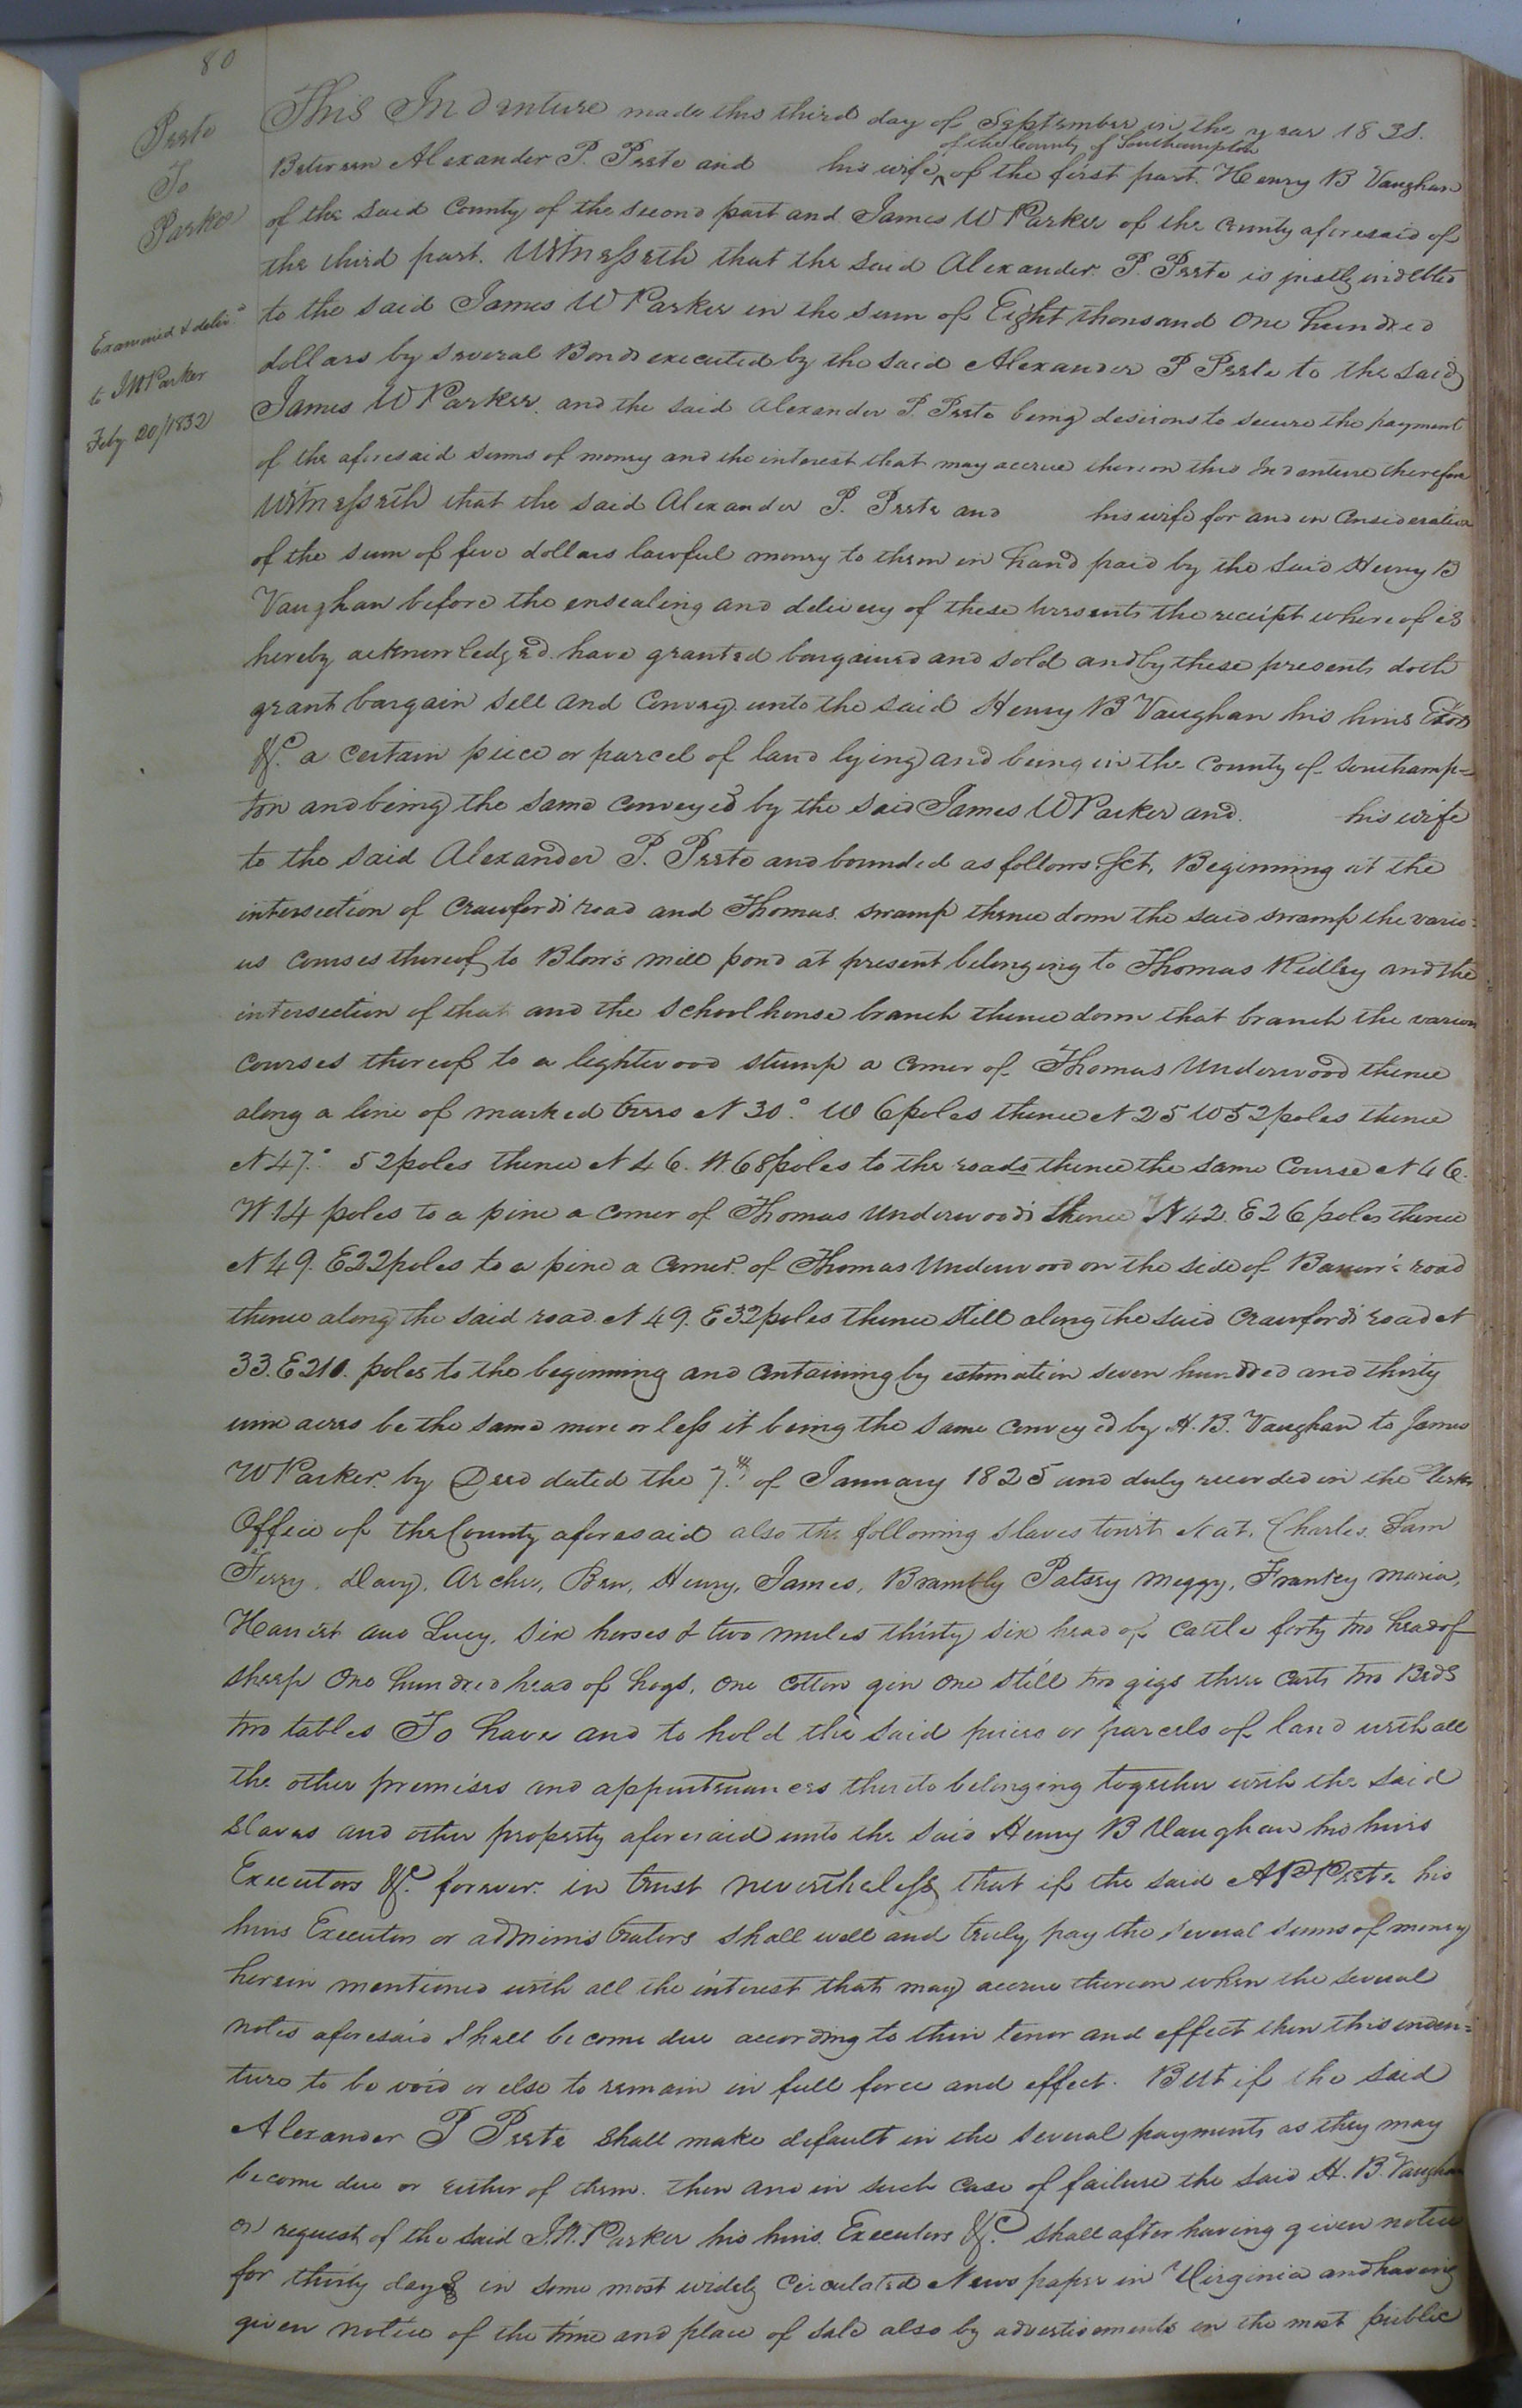 80
Peete
To
Parker
Examined & deliv.d
to J W Parker
Feby 20/1832
This Indenture made this third day of September in the year 1831.
of the County of Southampton
Between Alexander P. Peete and his wife ^ of the first part. Henry B Vaughan
of the said County of the second part and James W Parker of the County aforesaid of
the third part. Witnesseth that the said Alexander. P. Peete is justly indebted
to the said James W Parker in the sum of Eight thousand One hundred
dollars by several Bonds executed by the said Alexander P Peete to the said
James W Parker. and the said Alexander P. Peete being desirous to secure the payment
of the aforesaid sums of money and the interest that may accrue thereon this Indenture therefore
Witnesseth that the said Alexander P. Peete and his wife for and in Consideration
of the sum of five dollars lawful money to them in hand paid by the said Henry B
Vaughan before the ensealing and delivery of these presents the receipt whereof is
hereby acknowledged. have granted bargained and sold and by these presents doth
grant bargain sell and Convey unto the said Henry B Vaughan his heirs Exors
&c. a certain piece or parcel of land lying and being in the County of Southamp=
ton and being the same conveyed by the said James W Parker and. his wife
to the said Alexander P. Peete and bounded as follows. Sct, Beginning at the
intersection of Crawfords road and Thomas. swamp thence down the said swamp the vario=
us courses thereof to Blow's mill pond at present belonging to Thomas Ridley and the
intersection of that and the School house branch thence down that branch the various
courses thereof to a lightwood stump a corner of Thomas Underwood thence
along a line of marked trees N 30.° W 6 poles thence N 25 W 52 poles thence
N 47.° 52 poles thence N 46. W 68 poles to the roads thence the same Course N 46.
W. 14 poles to a pine a corner of Thomas Underwoods thence N 42. E 26 poles thence
N 49. E 22 poles to a pine a corner. of Thomas Underwood on the side of road
thence along the said road. N 49. E 32 poles thence still along the said Crawfords road N
33. E 210. poles to the beginning and containing by estimation seven hundred and thirty
nine acres be the same more or less it being the same conveyed by H. B. Vaughan to James
W Parker. by Deed dated the 7.th of January 1825 and duly recorded in the Clerks
Office of the County aforesaid also the following slaves towit Nat, Charles, Sam
Ferry, Davy, Archer, Ben, Henry, James, Brambly Patsey Meggy, Frankey Maria,
Harriet and Lucy, six horses & two mules thirty six head of cattle forty two head of
sheep One hundred head of hogs, one cotton gin one still two gigs three carts two Beds
two tables To have and to hold the said pieces or parcels of land with all
the other premises and appurtenances thereto belonging together with the said
slaves and other property aforesaid unto the said Henry B Vaughan his heirs
Executors &c. forever. in trust nevertheless that if the said A P Peete his
heirs Executors or administrators shall well and truly pay the several sums of money
herein mentioned with all the interest that may accrue thereon when the several
notes aforesaid shall become due according to their tenor and effect then this inden=
ture to be void or else to remain in full force and effect. But if the said
Alexander P Peete shall make default in the several payments as they may
become due or either of them. then and in such case of failure the said H. B. Vaughan
on request of the said J. W. Parker his heirs. Executors &c. shall after having given notice
for thirty days in some most widely Circulated News paper in Virginia and having
given notice of the time and place of sale also by advertisements in the most public